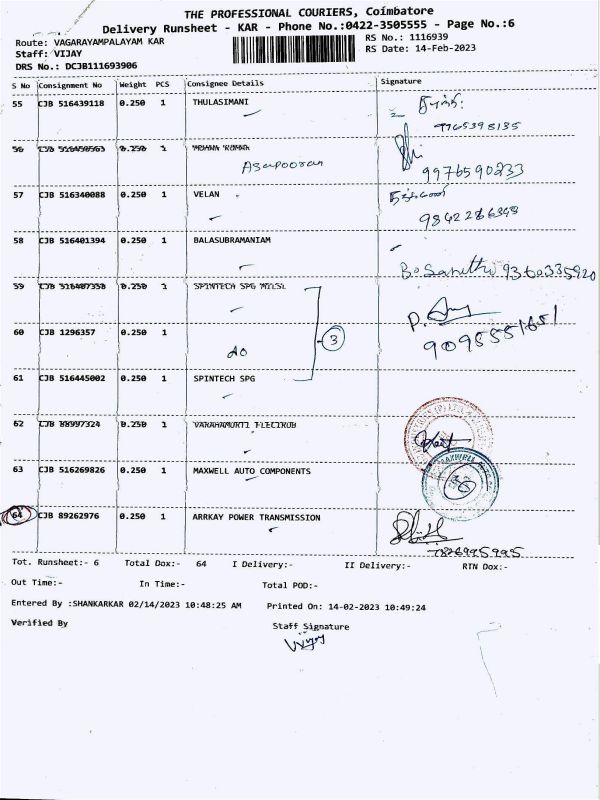 THE PROFESSIONAL COURIERS, Coimbatore
Delivery Runsheet - KAR - Phone No.:0422-3505555 - Page No.:6
Route: VAGARAYAMPALAYAM KAR
RS No.: 1116939
Staff: VIJAY
RS Date: 14-Feb-2023
DRS No.: DCJB111693906
S No Consignment No Weight PCS Consignee Details Signature
55 CJB 516439118 0.250 1 THULASIMANI
9765398135
56 0.250 1
Asapooran
9976590233
57 CJB 516340088 0.250 1 VELAN
9842286348
58 CJB 516401394 0.250 1 BALASUBRAMANIAM
9360335920
59 CJB 516407358 0.250 1 SPINTECH SPG MILSL
P.
60 CJB 1296357 0.250 1
3
do
9095551651
61 CJB 516445002 0.250 1 SPINTECH SPG
62 CJB 88997324 0.250 1
63 CJB 516269826 0.250 1 MAXWELL AUTO COMPONENTS
64 CJB 89262976 0.250 1 ARRKAY POWER TRANSMISSION
Tot. Runsheet:- 6 Total Dox:- 64 I Delivery:- II Delivery:- RTN Dox:-
Out Time:- In Time:- Total POD:-
Entered By :SHANKARKAR 02/14/2023 10:48:25 AM Printed On: 14-02-2023 10:49:24
Verified By Staff Signature
Vijay